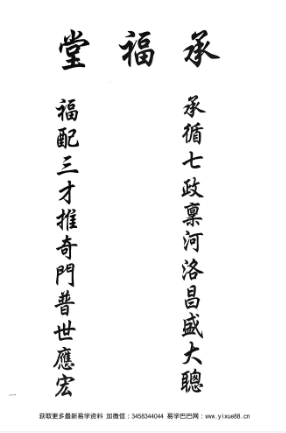 承福堂
承循七政禀河洛昌盛大聰
福配三才推奇門普世應宏
一
获取更多最新易学资料 加微信：3458344044 易学巴巴网：www.yixue88.cn